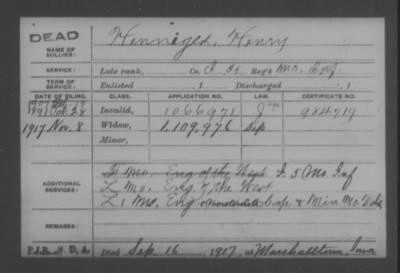 DEAD
Henniges, Henry
NAME OF SOLDIER:
SERVICE: Late rank, Co. I, 5, Reg't Mo. Inf
TERM OF SERVICE: Enlisted , 1 Discharged , 1
DATE OF FILING. CLASS. APPLICATION NO. LAW. CERTIFICATE NO.
1891 Invalid, 1066971 984719
1917 Nov. 8 Widow, 1,109,976 Sep
Minor,
Mo. Eng of the West I. 5 Mo Inf
ADDITIONAL SERVICES: L Mo. Eng. of the West
L, 1 Mo. Eng Sap & Min Mo. Vols
REMARKS:
Died Sep. 16, 1917, at Marshalltown, Iowa